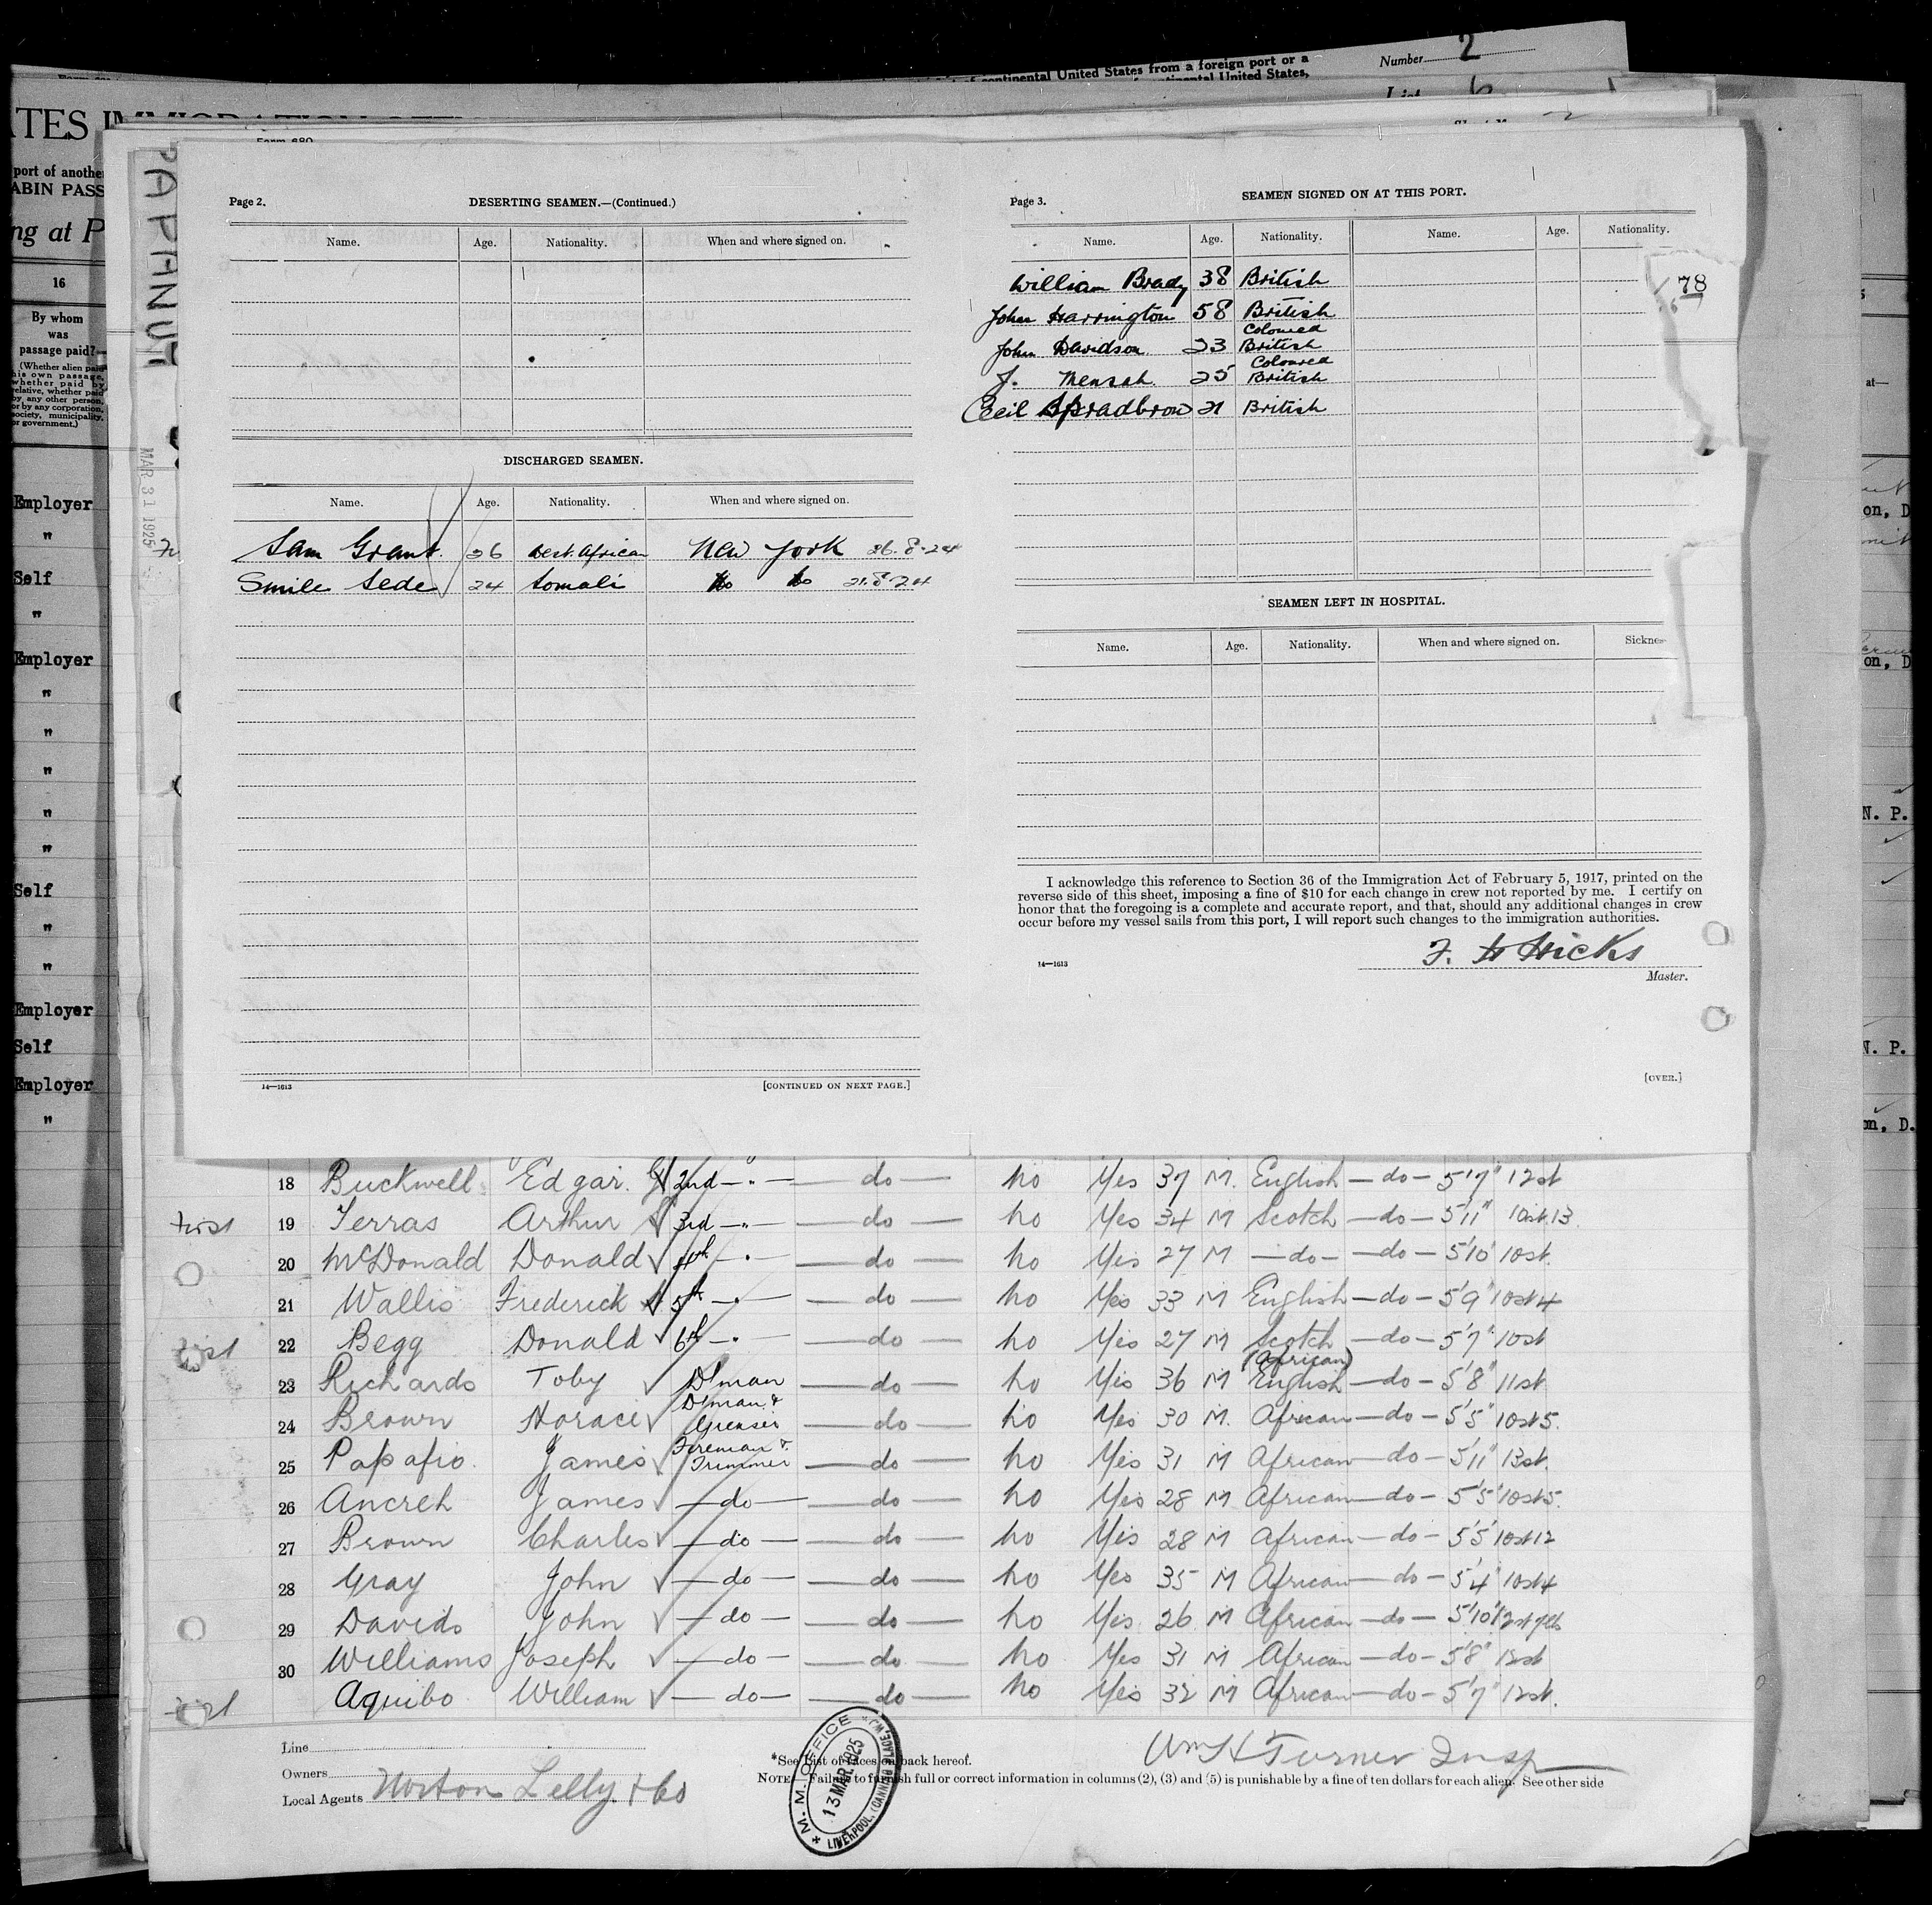 continental United States from a foreign port or a
continental United States,
Number 2
List
TES IMMIGRATION
Form 680
port of another
CABIN PASS
ng at P
16
By whom
was
passage paid?
(Whether alien paid
his own passage,
whether paid by
relative, whether paid
by any other person,
or by any corporation,
society, municipality,
or government.)
Employer
"
Self
"
Employer
"
"
"
"
"
Self
"
"
Employer
Self
Employer
"
PAPANUI
MAR 31 1925
Page 2.
DESERTING SEAMEN.—(Continued.)
Name. Age. Nationality. When and where signed on.
DISCHARGED SEAMEN.
Name. Age. Nationality. When and where signed on.
Sam Grant. 26 West African New York 26.8.24
Smile Sede 24 Somali Do Do 21.8.24
14—1613
[CONTINUED ON NEXT PAGE.]
Page 3.
SEAMEN SIGNED ON AT THIS PORT.
Name. Age. Nationality. Name. Age. Nationality.
William Brady 38 British
John Harrington 58 British
Coloured
John Davidson 23 British
Coloured
J. Mensah 25 British
Cecil Spradbrow 21 British
78
SEAMEN LEFT IN HOSPITAL.
Name. Age. Nationality. When and where signed on. Sicknes
I acknowledge this reference to Section 36 of the Immigration Act of February 5, 1917, printed on the
reverse side of this sheet, imposing a fine of $10 for each change in crew not reported by me. I certify on
honor that the foregoing is a complete and accurate report, and that, should any additional changes in crew
occur before my vessel sails from this port, I will report such changes to the immigration authorities.
F. H Hicks
14—1613
Master.
[OVER.]
at—
on, D
on, D
N. P.
N. P.
on, D.
18 Buckwell Edgar. G 2nd —"— —do— no Yes 37 M. English —do— 5'7" 12st
First 19 Terras Arthur 3rd —"— —do— no Yes 34 M Scotch —do— 5'11" 10st.13
20 McDonald Donald 4th —"— —do— no Yes 27 M —do— —do— 5'10" 10st.
21 Wallis Frederick 5th —"— —do— no Yes 33 M English —do— 5'9" 10st4
First 22 Begg Donald 6th —"— —do— no Yes 27 M Scotch —do— 5'7" 10st
(African)
23 Richards Toby D'man —do— no Yes 36 M English —do— 5'8" 11st
24 Brown Horace D'man & Greaser —do— no Yes 30 M. African —do— 5'5" 10st5.
25 Papafio. James Fireman & Trimmer —do— no Yes 31 M African —do— 5'11" 13st.
26 Ancreh James —do— —do— no Yes 28 M African —do— 5'5" 10st5.
27 Brown Charles —do— —do— no Yes 28 M African —do— 5'5" 10st12
28 Gray John —do— —do— no Yes 35 M African —do— 5'4" 10st4
29 Davids John —do— —do— no Yes 26 M African —do— 5'10" 12st7lbs
30 Williams Joseph —do— —do— no Yes 31 M African —do— 5'8" 12st
First Aquibo William —do— —do— no Yes 32 M African —do— 5'7" 12st.
Line
Owners
Local Agents Norton Lelly & Co
M. M. OFFICE
13 MAR. 1925
LIVERPOOL, (CANNING PLACE, W.)
*See List of races on back hereof.
NOTE—Failure to furnish full or correct information in columns (2), (3) and (5) is punishable by a fine of ten dollars for each alien. See other side
Wm H Turner Insp